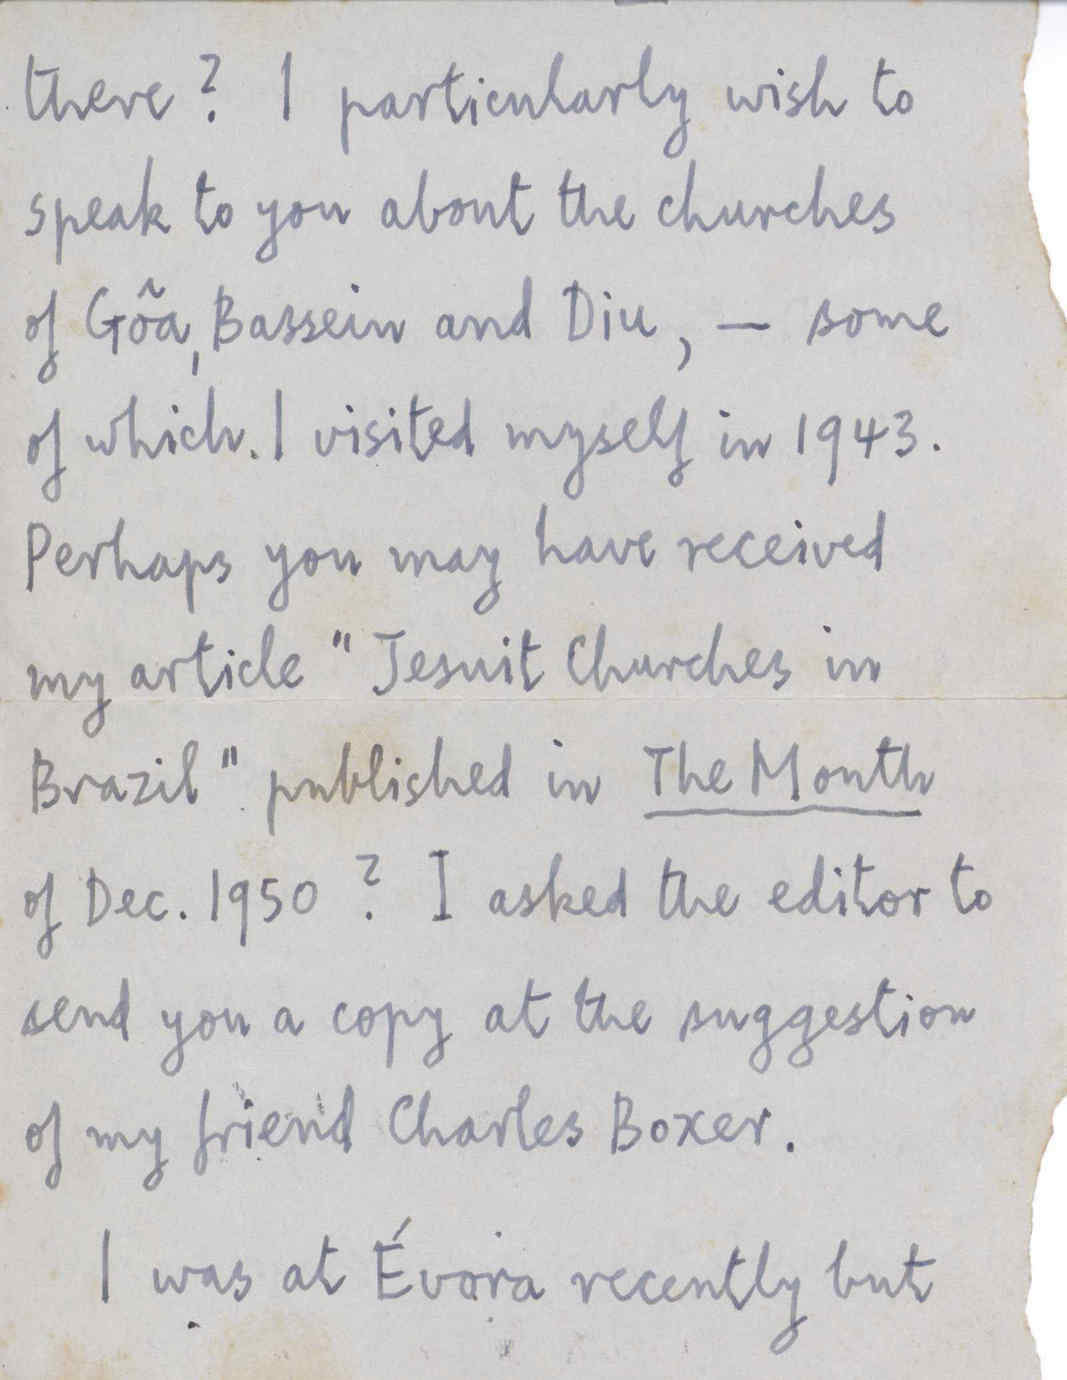 there? I particularly wish to
speak to you about the churches
of Gõa, Bassein and Diu, — some
of which I visited myself in 1943.
Perhaps you may have received
my article "Jesuit Churches in
Brazil" published in The Month
of Dec. 1950? I asked the editor to
send you a copy at the suggestion
of my friend Charles Boxer.
I was at Évora recently but